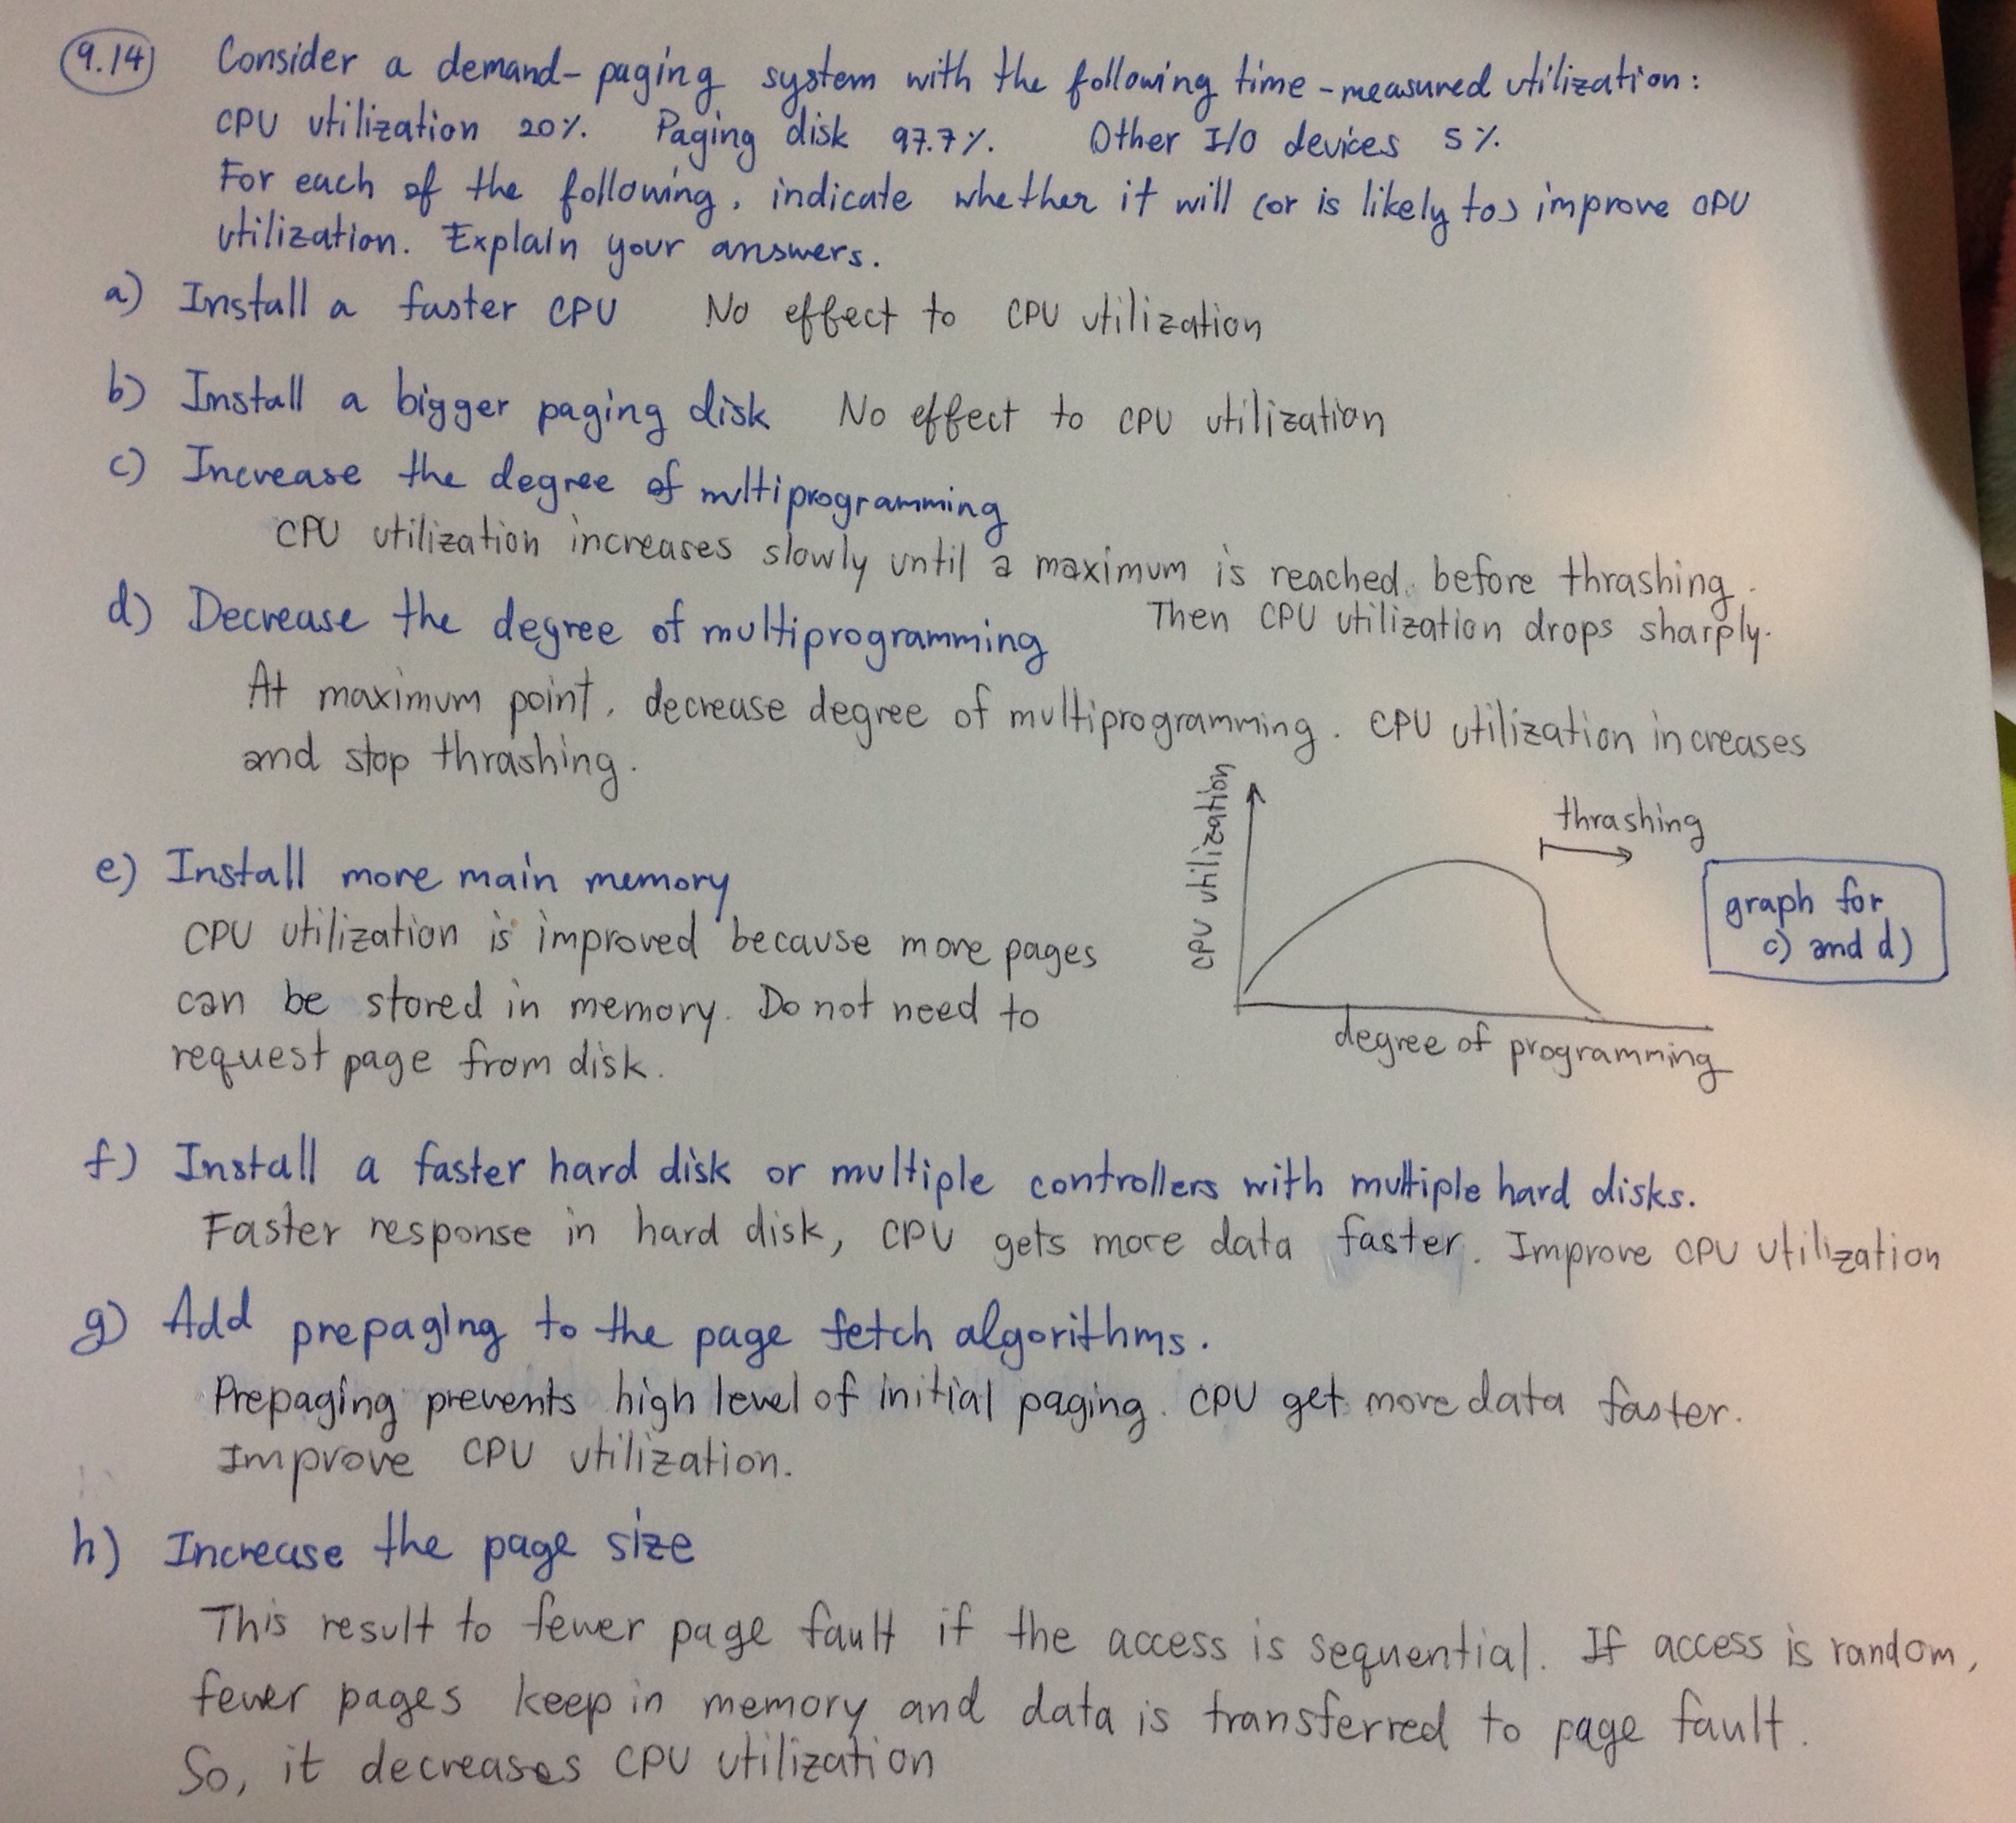 9.14 Consider a demand-paging system with the following time-measured utilization:
CPU utilization 20%. Paging disk 97.7%. Other I/O devices 5%.
For each of the following, indicate whether it will (or is likely to) improve CPU
utilization. Explain your answers.
a) Install a faster CPU No effect to CPU utilization
b) Install a bigger paging disk No effect to CPU utilization
c) Increase the degree of multiprogramming
CPU utilization increases slowly until a maximum is reached before thrashing.
Then CPU utilization drops sharply.
d) Decrease the degree of multiprogramming
At maximum point, decrease degree of multiprogramming. CPU utilization increases
and stop thrashing.
CPU utilization
thrashing
graph for
c) and d)
degree of programming
e) Install more main memory
CPU utilization is improved because more pages
can be stored in memory. Do not need to
request page from disk.
f) Install a faster hard disk or multiple controllers with multiple hard disks.
Faster response in hard disk, CPU gets more data faster. Improve CPU utilization
g) Add prepaging to the page fetch algorithms.
Prepaging prevents high level of initial paging. CPU get more data faster.
Improve CPU utilization.
h) Increase the page size
This result to fewer page fault if the access is sequential. If access is random,
fewer pages keep in memory and data is transferred to page fault.
So, it decreases CPU utilization